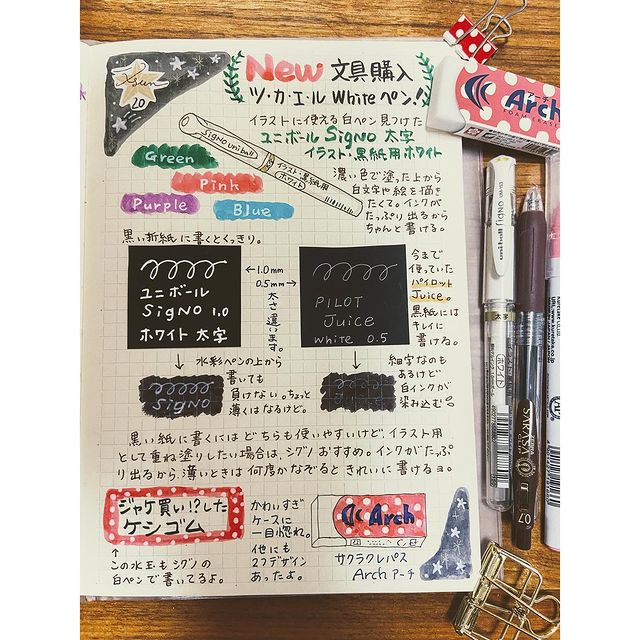 New 文具購入
ツ・カ・エ・ル White ペン!!
イラストに使える白ペン見つけた
ユニボール SigNO 太字
イラスト・黒紙用ホワイト
20
SigNO uniball
イラスト・黒紙用
ホワイト
Green
Pink
Purple
Blue
濃い色で塗った上から
白文字や絵を描き
たくて。インクが
たっぷり出るから
ちゃんと書ける。
黒い折紙に書くとくっきり。
ユニボール
SigNO 1.0
ホワイト 太字
←1.0mm
0.5mm→
太さ違います。
PILOT
Juice
White 0.5
今まで
使っていた
パイロット
Juice。
黒紙には
キレイに
書ける。
↓ 水彩ペンの上から
書いても
負けない。ちょっと
薄くはなるけど。
SigNO
↓ 細字なのも
あるけど
白インクが
染み込む
黒い紙に書くにはどちらも使いやすいけど、イラスト用
として重ね塗りしたい場合は、シグノおすすめ。インクがたっぷ
り出るから、薄いときは何度かなぞるときれいに書けるョ。
ジャケ買い!?した
ケシゴム
↑
この水玉もシグノの
白ペンで書いてるよ。
かわいすぎ
ケースに
一目惚れ。
他にも
2つデザイン
あったよ。
Arch
サクラクレパス
Arch アーチ
アーチ
Arch
FOAM ERASER
uni-ball SIGNO
太字
ホワイト
SARASA
0.7